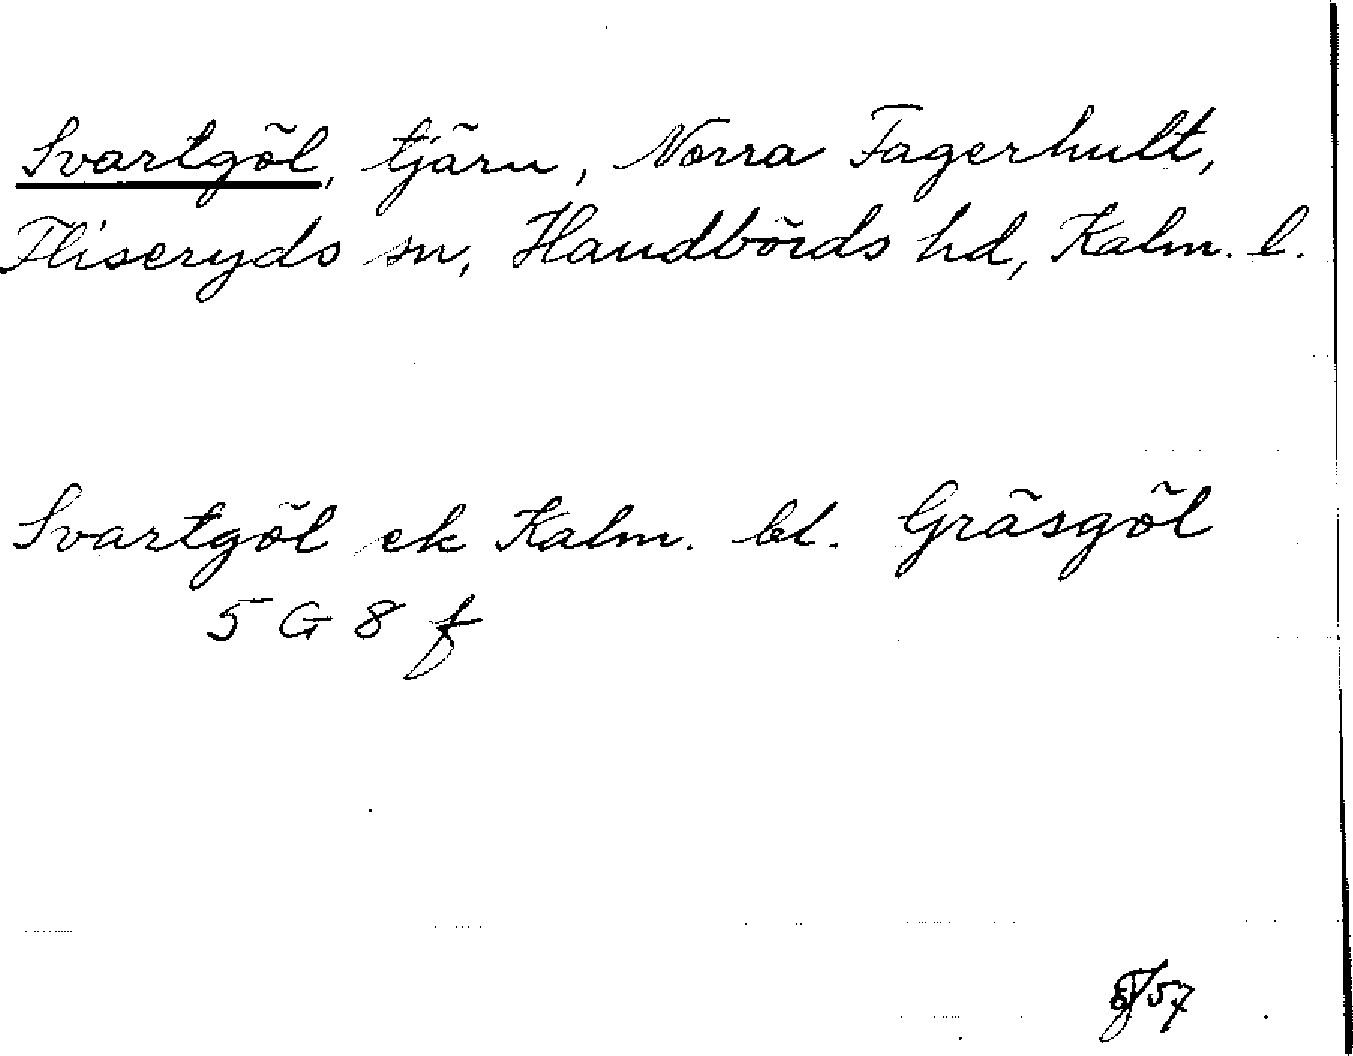 Svartgöl, tjärn, Norra Fagerhult,
Fliseryds sn, Handbörds hd, Kalm. l.
Svartgöl ek Kalm. bl. Gräsgöl
5 G 8 f
57